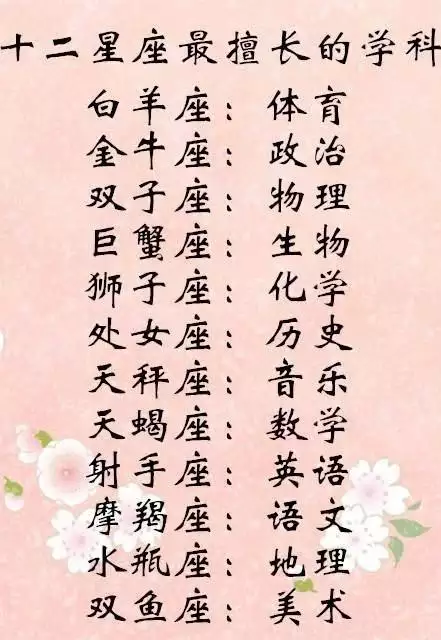 十二星座最擅长的学科
白羊座：体育
金牛座：政治
双子座：物理
巨蟹座：生物
狮子座：化学
处女座：历史
天秤座：音乐
天蝎座：数学
射手座：英语
摩羯座：语文
水瓶座：地理
双鱼座：美术